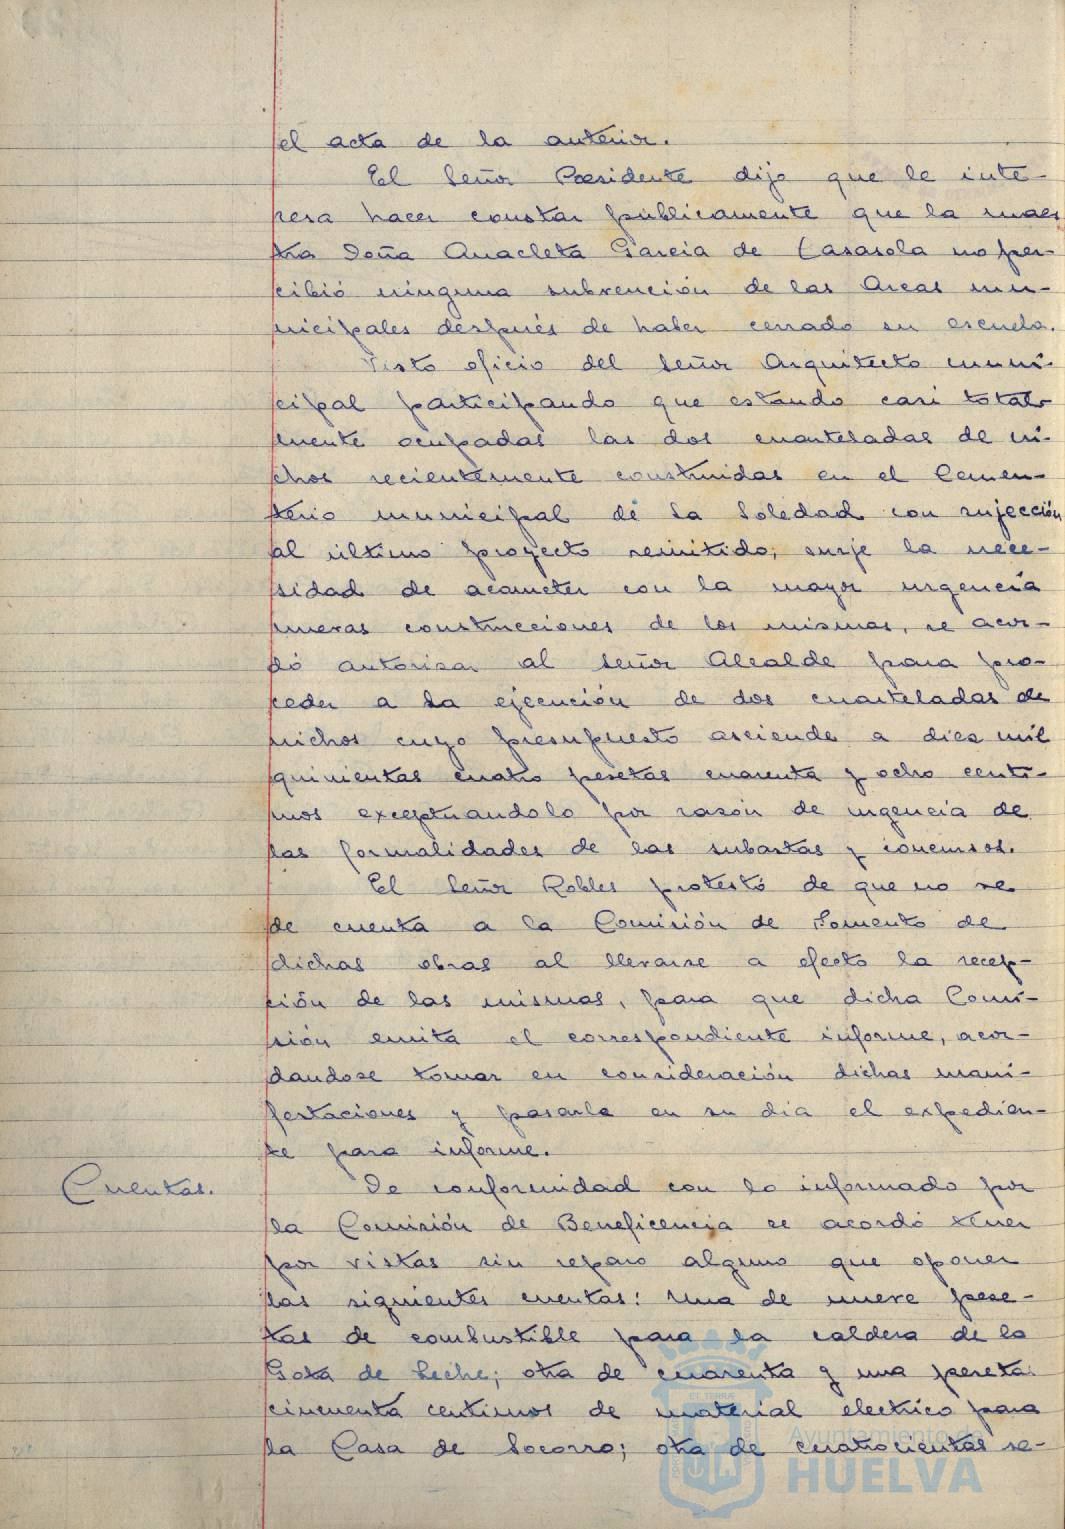 el acta de la anterior.
El Señor Presidente dijo que le inte-
resa hacer constar públicamente que la maes
tra Doña Anacleta Garcia de Casasola no per-
cibió ninguna subvención de las Arcas mu-
nicipales después de haber cerrado su escuela.
Visto oficio del Señor Arquitecto muni-
cipal participando que estando casi total-
mente ocupadas las dos cuarteladas de ni-
chos recientemente construidas en el Cemen-
terio municipal de la Soledad con sujección
al último proyecto remitido, surje la nece-
sidad de acometer con la mayor urgencia
nuevas construcciones de los mismos, se acor-
dó autorisar al señor Alcalde para pro-
ceder a la ejecución de dos cuarteladas de
nichos cuyo presupuesto asciende a diez mil
quinientas cuatro pesetas cuarenta y ocho centi-
mos exceptuandolo por razón de urgencia de
las formalidades de las subastas y concursos.
El Señor Robles protestó de que no se
de cuenta a la Comisión de Fomento de
dichas obras al llevarse a efecto la recep-
ción de las mismas, para que dicha Comi-
sión emita el correspondiente informe, acor-
dandose tomar en consideración dichas mani-
festaciones y pasarle en su dia el expedien-
te para informe.
Cuentas.
De conformidad con lo informado por
la Comisión de Beneficencia se acordó tener
por vistas sin reparo alguno que oponer
las siguientes cuentas: Una de nueve pese-
tas de combustible para la caldera de la
Gota de Leche; otra de cuarenta y una peseta
cincuenta centimos de material electrico para
la Casa de Socorro; otra de cuatrocientas se-
Ayuntamiento de
HUELVA